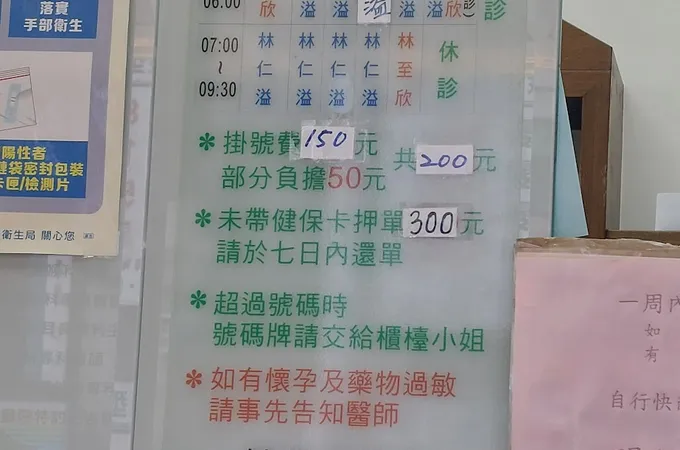 落實
手部衛生
陽性者
鏈袋密封包裝
卡匣/檢測片
衛生局 關心您
06:00 欣 溢 溢 溢 溢 溢欣 診
07:00
~
09:30
林仁溢
林仁溢
林仁溢
林仁溢
林至欣
休診
*掛號費150元
部分負擔50元
共200元
*未帶健保卡押單300元
請於七日內還單
*超過號碼時
號碼牌請交給櫃檯小姐
*如有懷孕及藥物過敏
請事先告知醫師
一周內
如
有
自行快